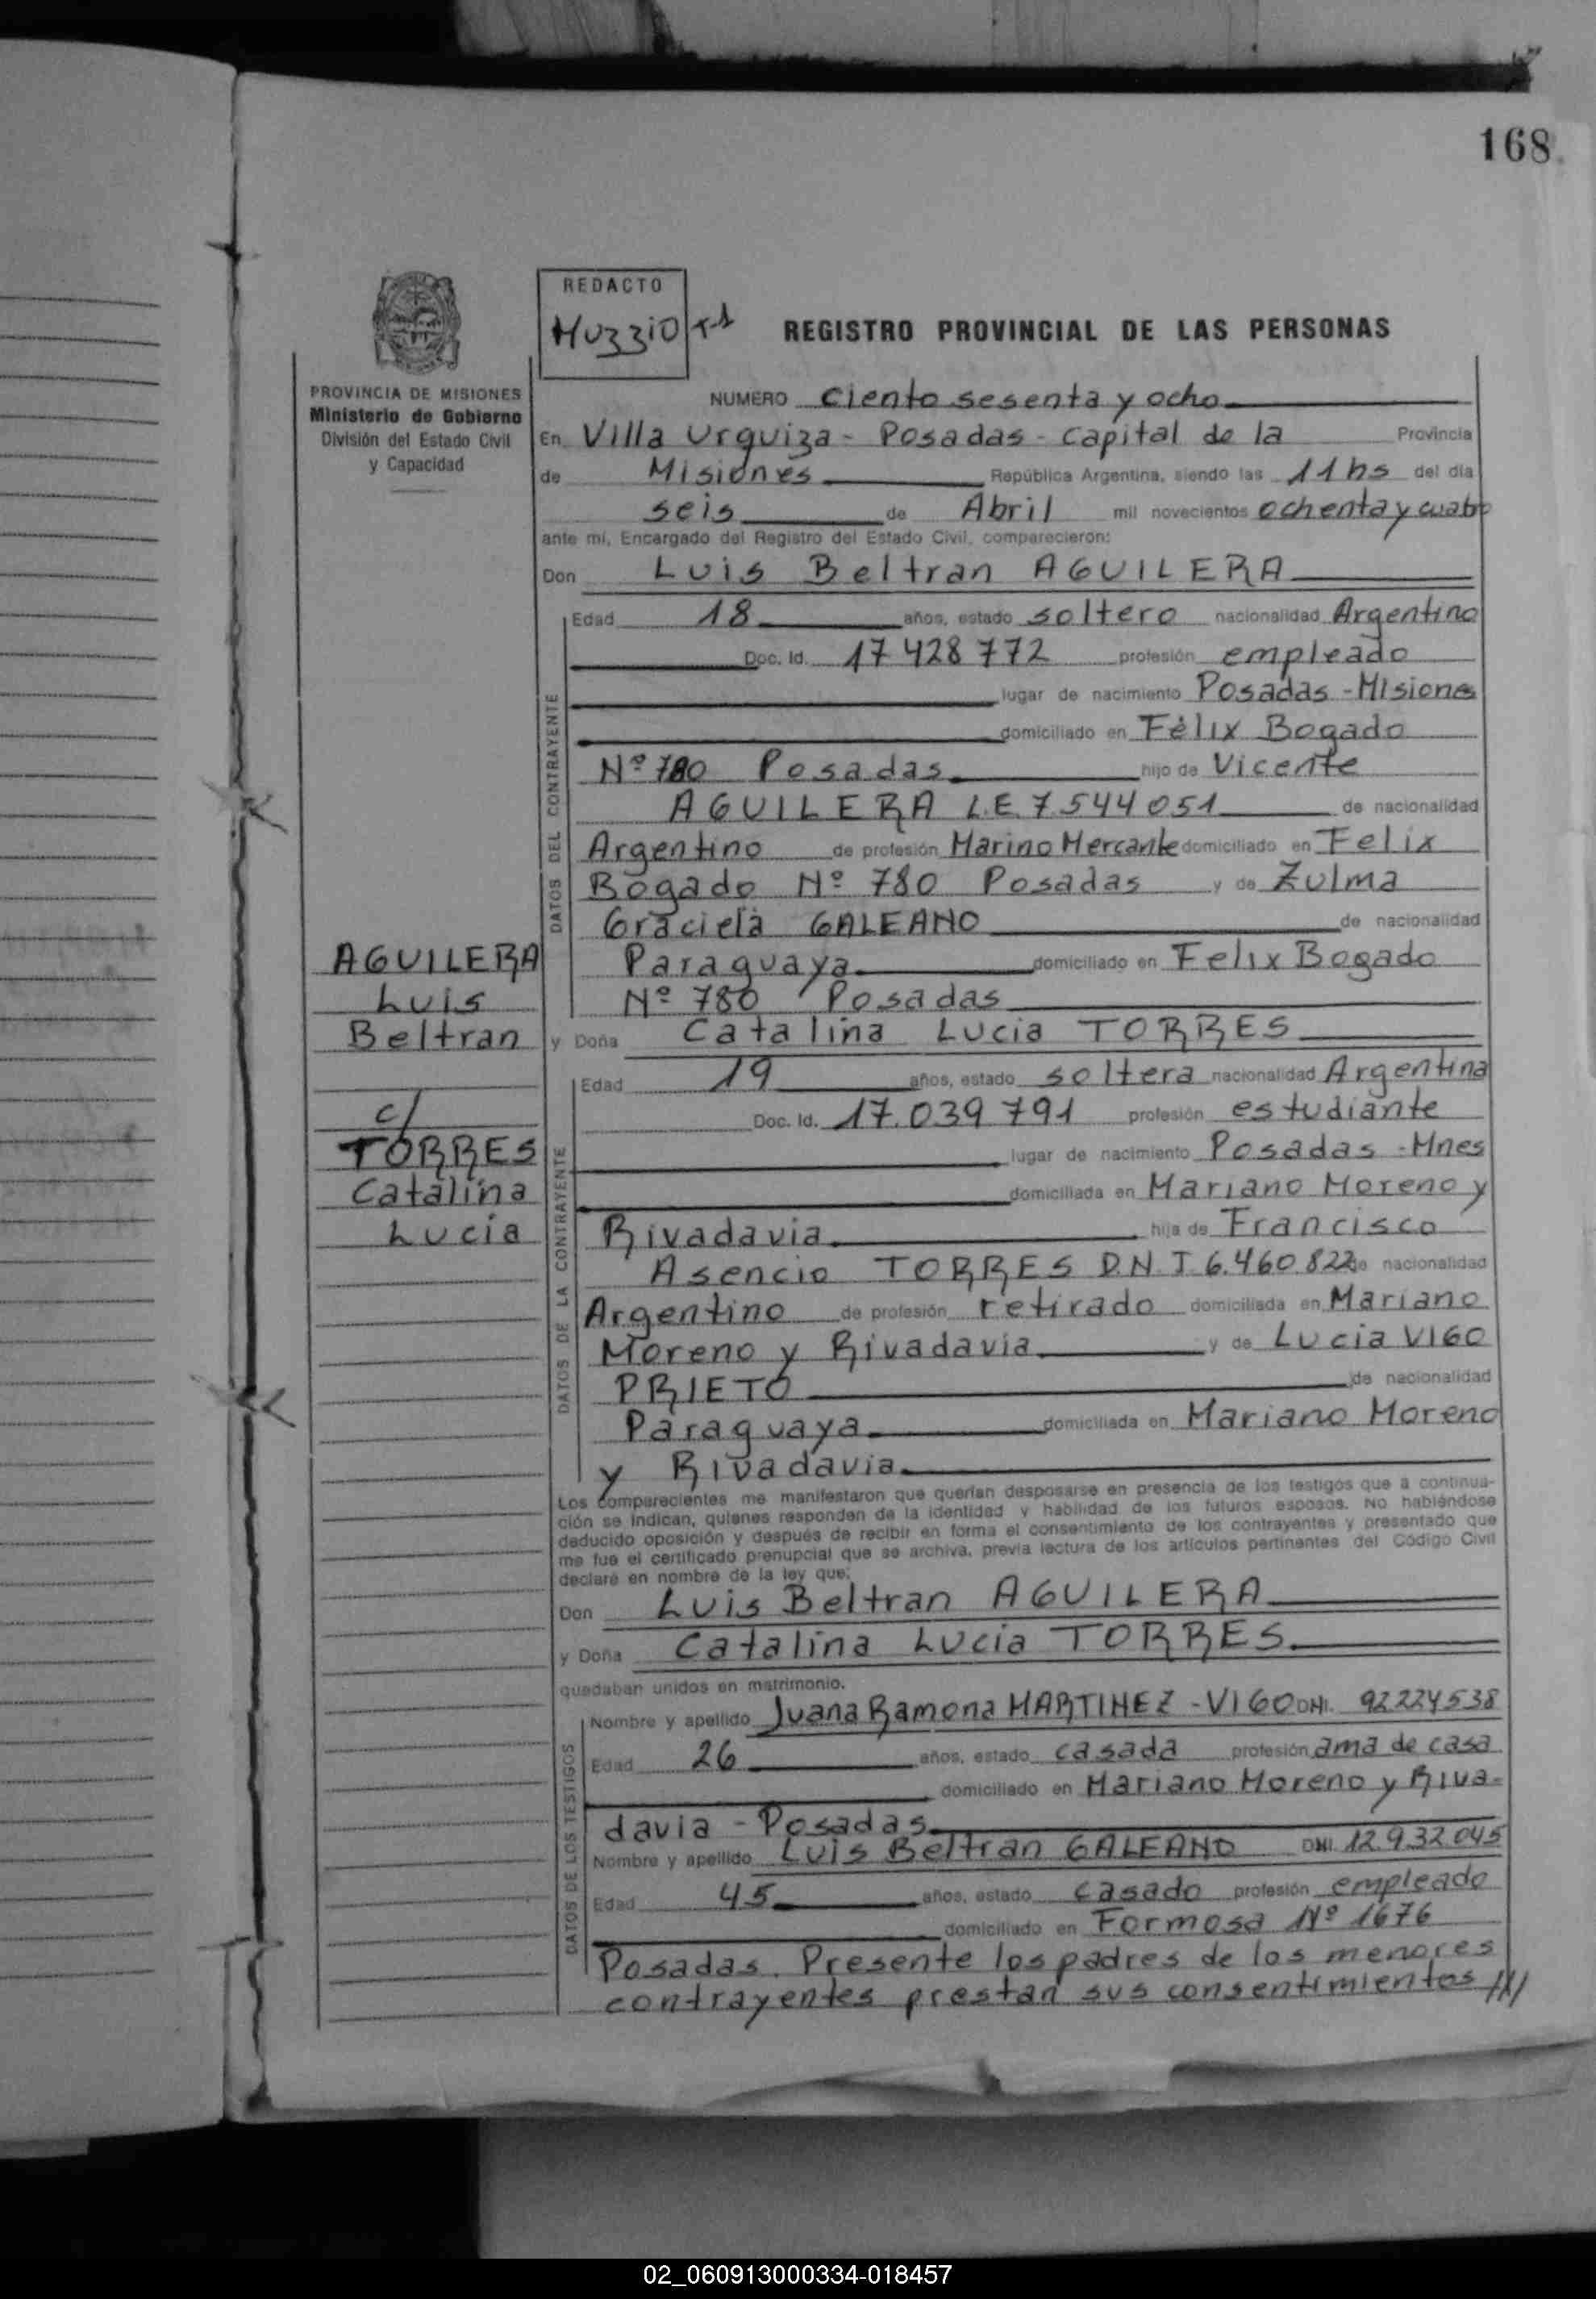 168
REDACTO
Muzzio
REGISTRO PROVINCIAL DE LAS PERSONAS
PROVINCIA DE MISIONES
Ministerio de Gobierno
División del Estado Civil
y Capacidad
NUMERO Ciento sesenta y ocho
En Villa Urquiza - Posadas - Capital de la Provincia
de Misiones República Argentina, siendo las 11 hs del día
seis de Abril mil novecientos ochenta y cuatro
ante mí, Encargado del Registro del Estado Civil, comparecieron:
Don Luis Beltran AGUILERA
Edad 18 años, estado soltero nacionalidad Argentino
Doc. Id. 17428772 profesión empleado
lugar de nacimiento Posadas - Misiones
domiciliado en Fèlix Bogado
Nº 780 Posadas hijo de Vicente
AGUILERA L.E. 7544051 de nacionalidad
Argentino de profesión Marino Mercante domiciliado en Felix
Bogado Nº 780 Posadas y de Zulma
Graciela GALEANO de nacionalidad
Paraguaya domiciliado en Felix Bogado
Nº 780 Posadas
DATOS DEL CONTRAYENTE
AGUILERA
Luis
Beltran
c/
TORRES
Catalina
Lucia
y Doña Catalina Lucia TORRES
Edad 19 años, estado soltera nacionalidad Argentina
Doc. Id. 17.039791 profesión estudiante
lugar de nacimiento Posadas - Mnes
domiciliada en Mariano Moreno y
Rivadavia hija de Francisco
Asencio TORRES D.N.I. 6.460.822 de nacionalidad
Argentino de profesión retirado domiciliada en Mariano
Moreno y Rivadavia y de Lucia VIGO
PRIETO de nacionalidad
Paraguaya domiciliada en Mariano Moreno
y Rivadavia
DATOS DE LA CONTRAYENTE
Los comparecientes me manifestaron que querían desposarse en presencia de los testigos que a continua-
ción se indican, quienes responden de la identidad y habilidad de los futuros esposos. No habiéndose
deducido oposición y después de recibir en forma el consentimiento de los contrayentes y presentado que
me fue el certificado prenupcial que se archiva, previa lectura de los artículos pertinentes del Código Civil
declaré en nombre de la ley que:
Don Luis Beltran AGUILERA
y Doña Catalina Lucia TORRES
quedaban unidos en matrimonio.
Nombre y apellido Juana Ramona MARTINEZ - VIGO DNI. 92224538
Edad 26 años, estado casada profesión ama de casa
domiciliado en Mariano Moreno y Riva-
davia - Posadas
Nombre y apellido Luis Beltran GALEANO DNI. 12.932.045
Edad 45 años, estado casado profesión empleado
domiciliado en Formosa Nº 1676
Posadas. Presente los padres de los menores
contrayentes prestan sus consentimientos ///
DATOS DE LOS TESTIGOS
02_060913000334-018457